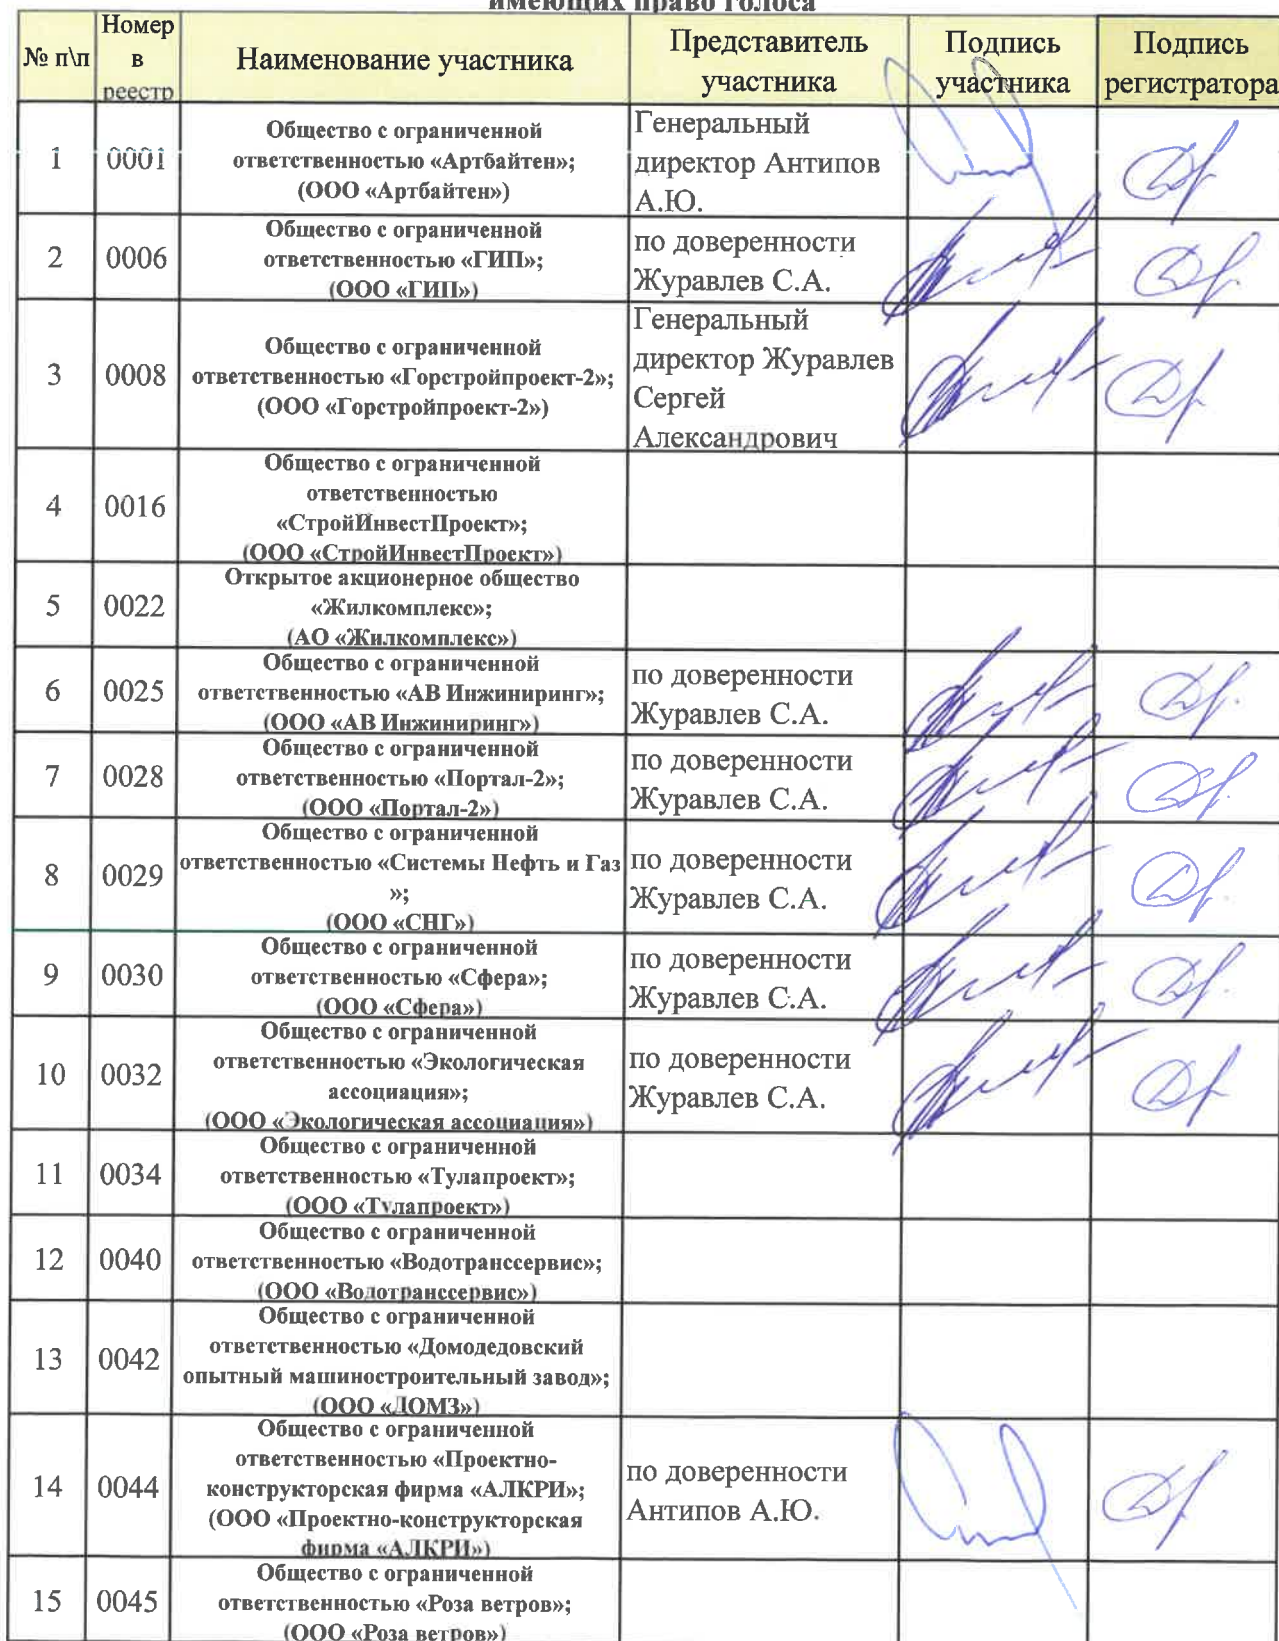 имеющих право голоса
№ п\п
Номер
в
реестр
Наименование участника
Представитель
участника
Подпись
участника
Подпись
регистратора
1
0001
Общество с ограниченной
ответственностью «Артбайтен»;
(ООО «Артбайтен»)
Генеральный
директор Антипов
А.Ю.
2
0006
Общество с ограниченной
ответственностью «ГИП»;
(ООО «ГИП»)
по доверенности
Журавлев С.А.
3
0008
Общество с ограниченной
ответственностью «Горстройпроект-2»;
(ООО «Горстройпроект-2»)
Генеральный
директор Журавлев
Сергей
Александрович
4
0016
Общество с ограниченной
ответственностью
«СтройИнвестПроект»;
(ООО «СтройИнвестПроект»)
5
0022
Открытое акционерное общество
«Жилкомплекс»;
(АО «Жилкомплекс»)
6
0025
Общество с ограниченной
ответственностью «АВ Инжиниринг»;
(ООО «АВ Инжиниринг»)
по доверенности
Журавлев С.А.
7
0028
Общество с ограниченной
ответственностью «Портал-2»;
(ООО «Портал-2»)
по доверенности
Журавлев С.А.
8
0029
Общество с ограниченной
ответственностью «Системы Нефть и Газ
»;
(ООО «СНГ»)
по доверенности
Журавлев С.А.
9
0030
Общество с ограниченной
ответственностью «Сфера»;
(ООО «Сфера»)
по доверенности
Журавлев С.А.
10
0032
Общество с ограниченной
ответственностью «Экологическая
ассоциация»;
(ООО «Экологическая ассоциация»)
по доверенности
Журавлев С.А.
11
0034
Общество с ограниченной
ответственностью «Тулапроект»;
(ООО «Тулапроект»)
12
0040
Общество с ограниченной
ответственностью «Водотранссервис»;
(ООО «Водотранссервис»)
13
0042
Общество с ограниченной
ответственностью «Домодедовский
опытный машиностроительный завод»;
(ООО «ДОМЗ»)
14
0044
Общество с ограниченной
ответственностью «Проектно-
конструкторская фирма «АЛКРИ»;
(ООО «Проектно-конструкторская
фирма «АЛКРИ»)
по доверенности
Антипов А.Ю.
15
0045
Общество с ограниченной
ответственностью «Роза ветров»;
(ООО «Роза ветров»)